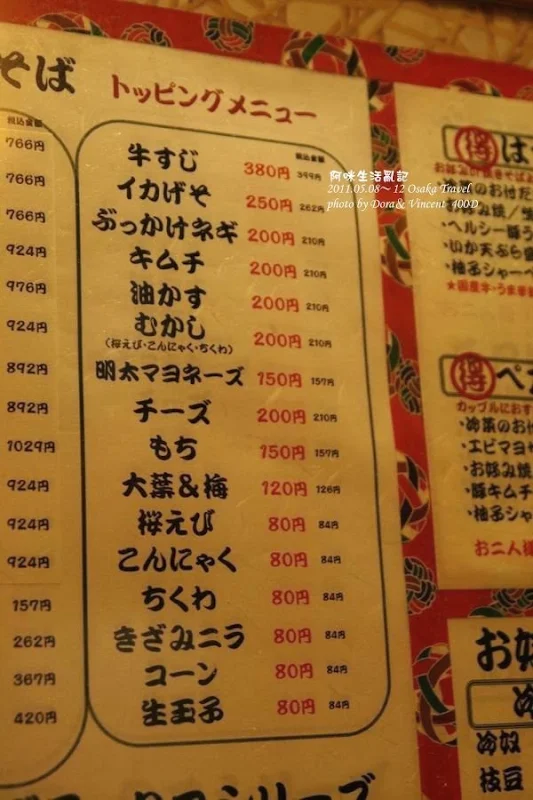 そば
税込金額
766円
766円
766円
924円
976円
924円
892円
892円
1029円
924円
924円
924円
157円
262円
367円
420円
トッピングメニュー
税込金額
牛すじ 380円 399円
イカげそ 250円 262円
ぶっかけネギ 200円 210円
キムチ 200円 210円
油かす 200円 210円
むかし 200円 210円
(桜えび・こんにゃく・ちくわ)
明太マヨネーズ 150円 157円
チーズ 200円 210円
もち 150円 157円
大葉&梅 120円 126円
桜えび 80円 84円
こんにゃく 80円 84円
ちくわ 80円 84円
きざみニラ 80円 84円
コーン 80円 84円
生玉子 80円 84円
阿咪生活亂記
2011.05.08~12 Osaka Travel
photo by Dora & Vincent 400D
得 は
のお付だ
お好み焼/焼
・ヘルシー豚
・いか天ぷら
・柚子シャーベ
得 ペ
カップルにおす
・冷菜のお付
・エビマヨ
・お好み焼
・豚キムチ
・柚子シャー
お二人様
お好
冷
冷奴
枝豆
シリーズ